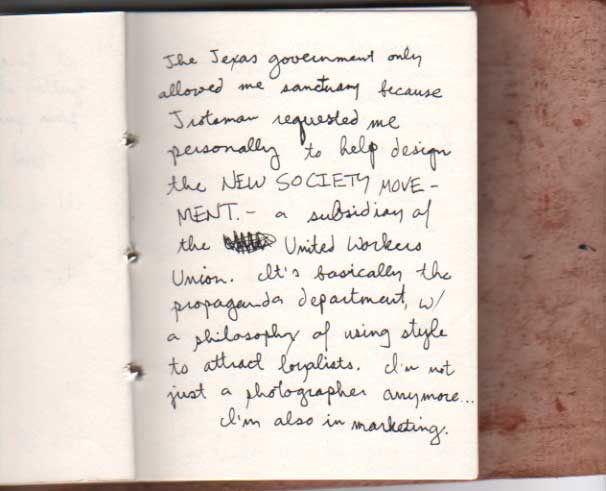 The Texas government only
allowed me sanctuary because
Trotsman requested me
personally to help design
the NEW SOCIETY MOVE-
MENT. - a subsidiary of
the United Workers
Union. It's basically the
propaganda department, w/
a philosophy of using style
to attract loyalists. I'm not
just a photographer anymore...
I'm also in marketing.